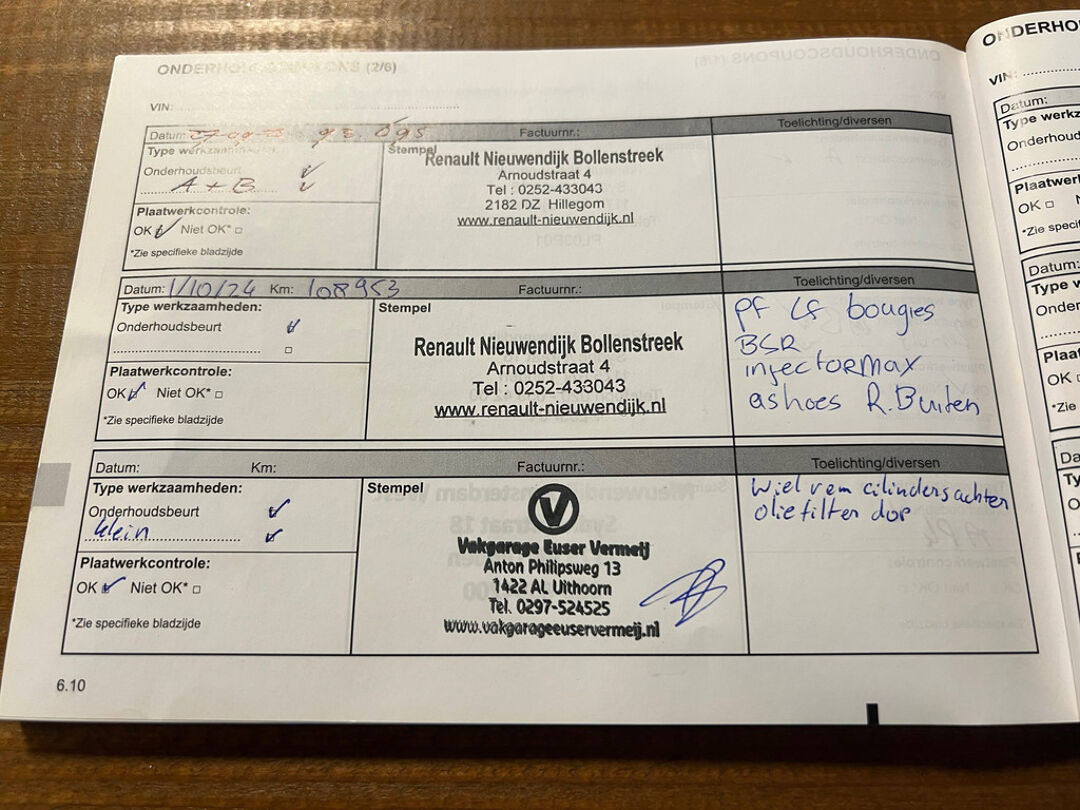 ONDERHOUDSCOUPONS (2/6)
VIN:
Datum: 27-09-23 93.095 Factuurnr.: Toelichting/diversen
Type werkzaamheden:
Onderhoudsbeurt
A + B
Plaatwerkcontrole:
OK Niet OK*
*Zie specifieke bladzijde
Stempel
Renault Nieuwendijk Bollenstreek
Arnoudstraat 4
Tel : 0252-433043
2182 DZ Hillegom
www.renault-nieuwendijk.nl
Datum: 1/10/24 Km: 108953 Factuurnr.: Toelichting/diversen
Type werkzaamheden:
Onderhoudsbeurt
Plaatwerkcontrole:
OK Niet OK*
*Zie specifieke bladzijde
Stempel
Renault Nieuwendijk Bollenstreek
Arnoudstraat 4
Tel : 0252-433043
www.renault-nieuwendijk.nl
PF LF bougies
BSR
injectormax
ashoes R.Buiten
Datum: Km: Factuurnr.: Toelichting/diversen
Type werkzaamheden:
Onderhoudsbeurt
klein
Plaatwerkcontrole:
OK Niet OK*
*Zie specifieke bladzijde
Stempel
V
Vakgarage Euser Vermeij
Anton Philipsweg 13
1422 AL Uithoorn
Tel. 0297-524525
www.vakgarageeuservermeij.nl
Wiel rem cilinders achter
oliefilter dop
6.10
ONDERHO
VIN:
Datum:
Type werkz
Onderhouds
Plaatwerk
OK
*Zie specif
Datum:
Type w
Onder
Plaa
OK
*Zie
Da
Ty